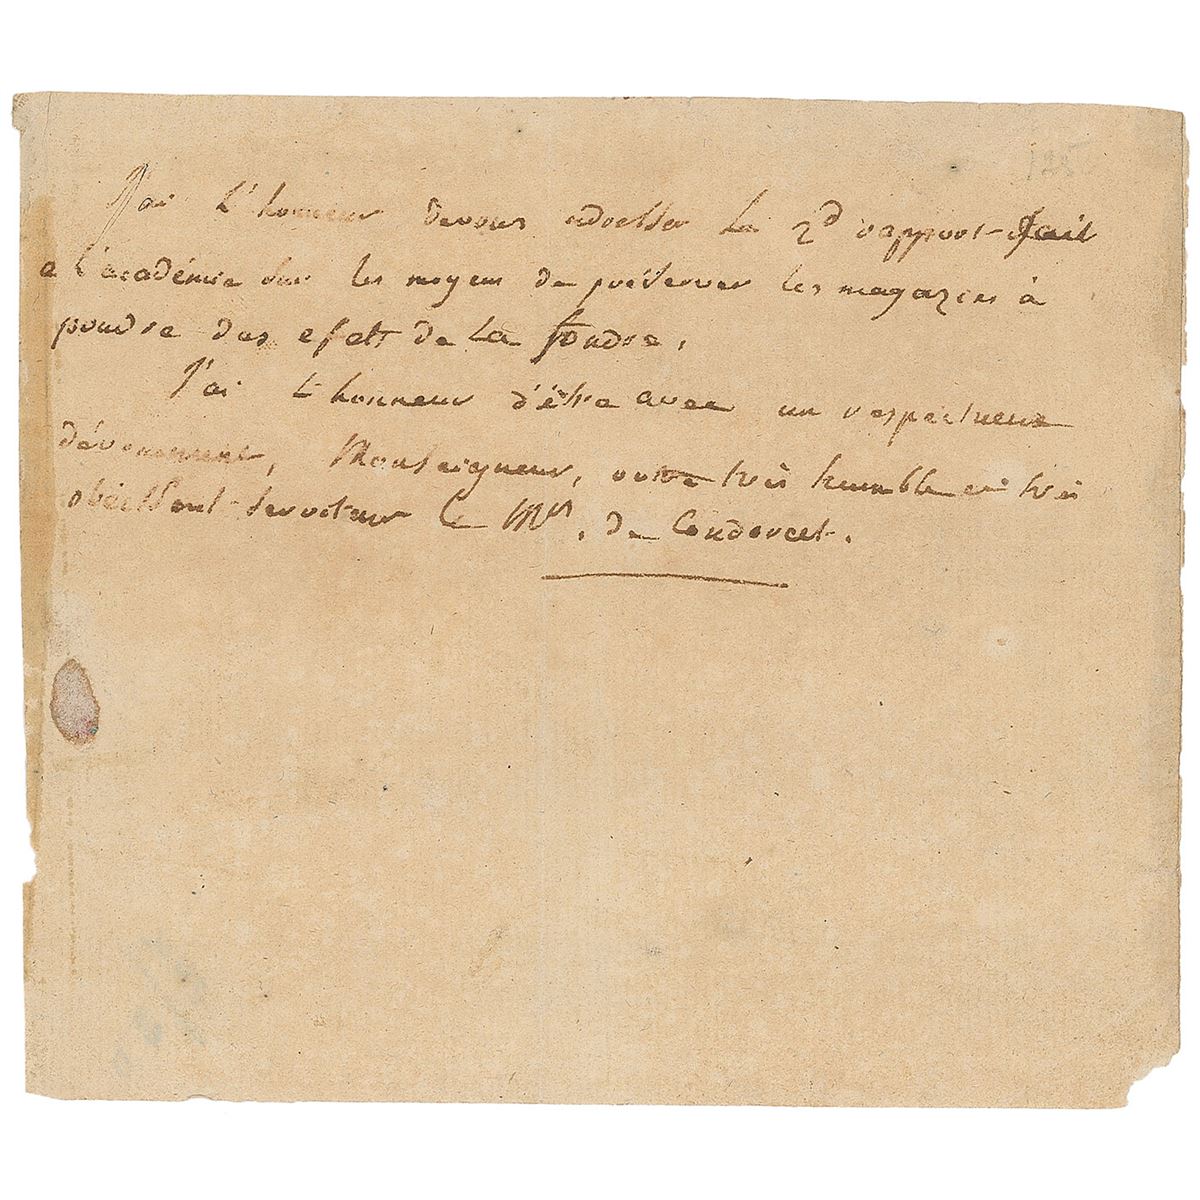 J'ai l'honneur de vous adresser le 2d rapport fait
a l'académie sur les moyens de préserver les magazins à
poudre des efets de la foudre.
J'ai l'honneur d'être avec un respectueux
dévouement, Monseigneur, votre très humble et très
obéissant serviteur le Mis. de Condorcet.